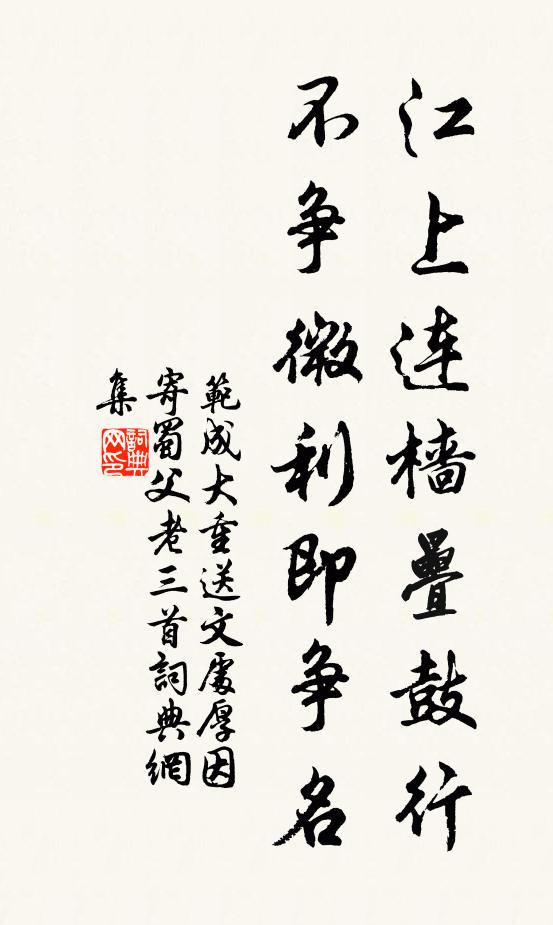 江上连樯疊鼓行
不争微利即争名
範成大重送文處厚因
寄蜀父老三首詞典網
集
詞典
网印